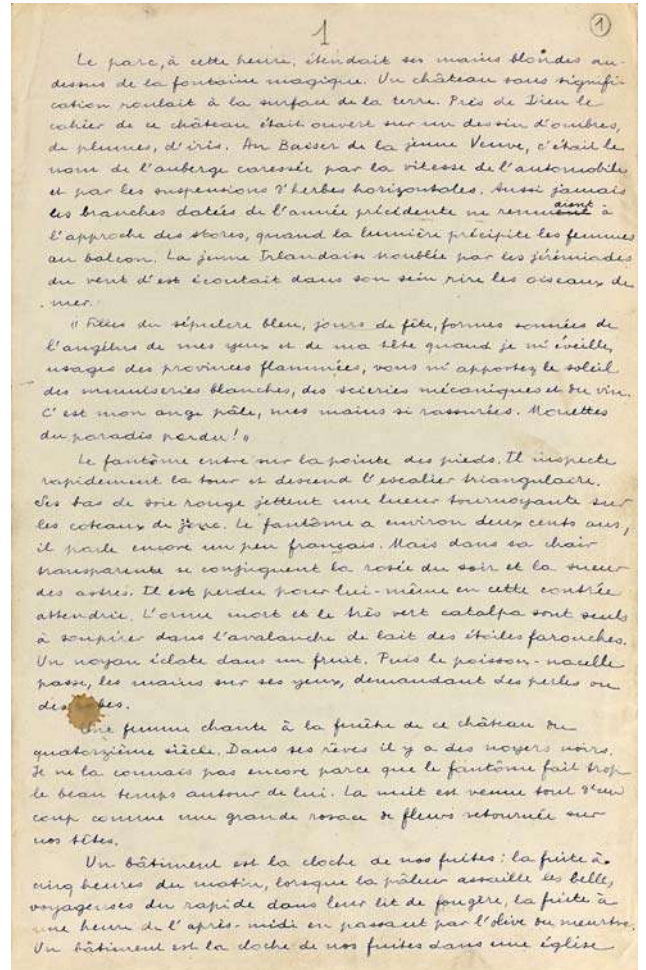 1
1
Le parc, à cette heure, étendait ses mains blondes au-
dessus de la fontaine magique. Un château sans signifi-
cation roulait à la surface de la terre. Près de Dieu le
cahier de ce château était ouvert sur un dessin d'ombres,
de plumes, d'iris. Au Baiser de la jeune Veuve, c'était le
nom de l'auberge caressée par la vitesse de l'automobile
et par les suspensions d'herbes horizontales. Aussi jamais
les branches datées de l'année précédente ne remuaient à
l'approche des stores, quand la lumière précipite les femmes
au balcon. La jeune Irlandaise troublée par les jérémiades
du vent d'est écoutait dans son sein rire les oiseaux de
mer.
« Filles du sépulcre bleu, jours de fête, formes sonnées de
l'angélus de mes yeux et de ma tête quand je m'éveille,
usages des provinces flammées, vous m'apportez le soleil
des menuiseries blanches, des scieries mécaniques et du vin.
C'est mon ange pâle, mes mains si rassurées. Mouettes
du paradis perdu! »
Le fantôme entre sur la pointe des pieds. Il inspecte
rapidement la tour et descend l'escalier triangulaire.
Ses bas de soie rouge jettent une lueur tournoyante sur
les coteaux de jonc. Le fantôme a environ deux cents ans,
il parle encore un peu français. Mais dans sa chair
transparente se conjuguent la rosée du soir et la sueur
des astres. Il est perdu pour lui-même en cette contrée
attendrie. L'orme mort et le très vert catalpa sont seuls
à soupirer dans l'avalanche de lait des étoiles farouches.
Un noyau éclate dans un fruit. Puis le poisson-nacelle
passe, les mains sur ses yeux, demandant des perles ou
des robes.
Une femme chante à la fenêtre de ce château du
quatorzième siècle. Dans ses rêves il y a des noyers noirs.
Je ne la connais pas encore parce que le fantôme fait trop
le beau temps autour de lui. La nuit est venue tout d'un
coup comme une grande rosace de fleurs retournée sur
nos têtes.
Un bâtiment est la cloche de nos fuites : la fuite à
cinq heures du matin, lorsque la pâleur assaille les belles
voyageuses du rapide dans leur lit de fougère, la fuite à
une heure de l'après-midi en passant par l'olive du meurtre.
Un bâtiment est la cloche de nos fuites dans une église